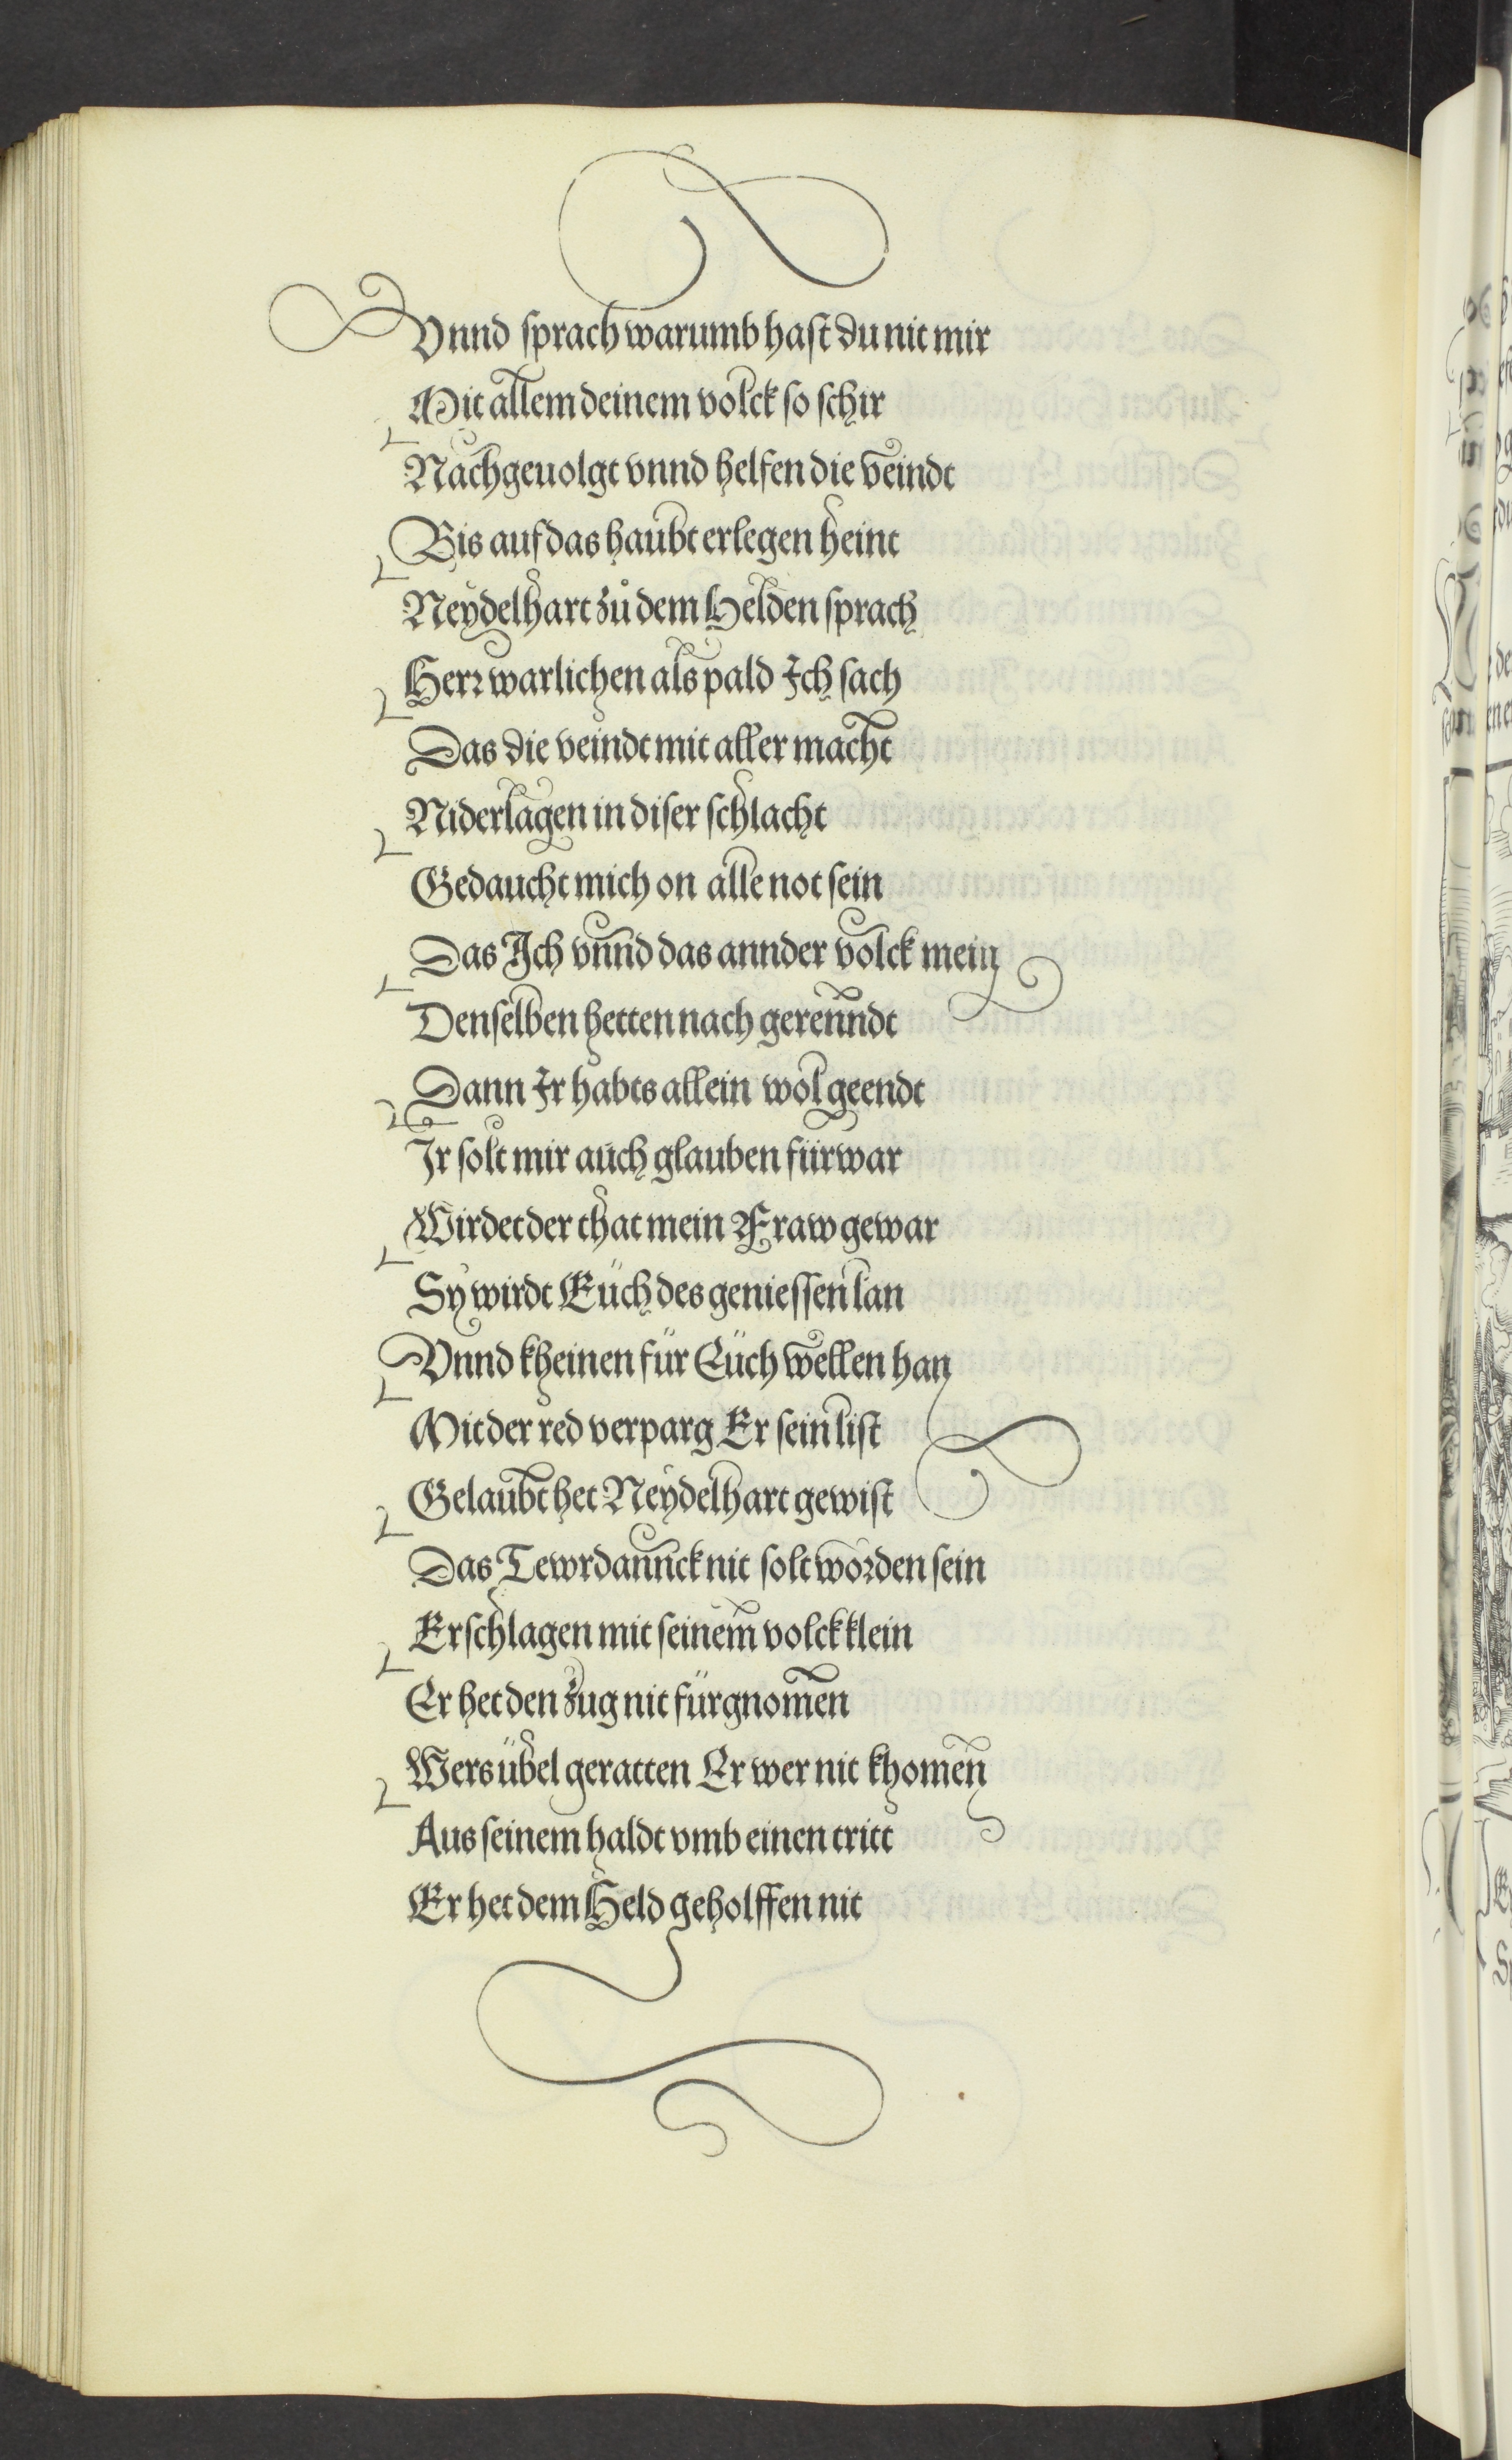 Vnnd sprach warumb hast du nit mir
Mit allem deinem volck so schir
Nachgeuolgt vnnd helfen die veindt
Bis auf das haubt erlegen heint
Neydelhart zů dem Helden sprach
Herr warlichen als pald Ich sach
Das die veindt mit aller macht
Niderlagen in diser schlacht
Gedaucht mich on alle not sein
Das Ich vnnd das annder volck mein
Denselben hetten nach gerenndt
Dann Ir habts allein wol geendt
Ir solt mir auch glauben fürwar
Wirdet der that mein Fraw gewar
Sy wirdt Euch des geniessen lan
Vnnd kheinen für Eüch wellen han
Mit der red verparg Er sein list
Gelaubt het Neydelhart gewist
Das Tewrdannck nit solt worden sein
Erschlagen mit seinem volck klein
Er het den zug nit fürgnomen
Wers übel geratten Er wer nit khomen
Aus seinem haldt vmb einen tritt
Er het dem Held geholffen nit